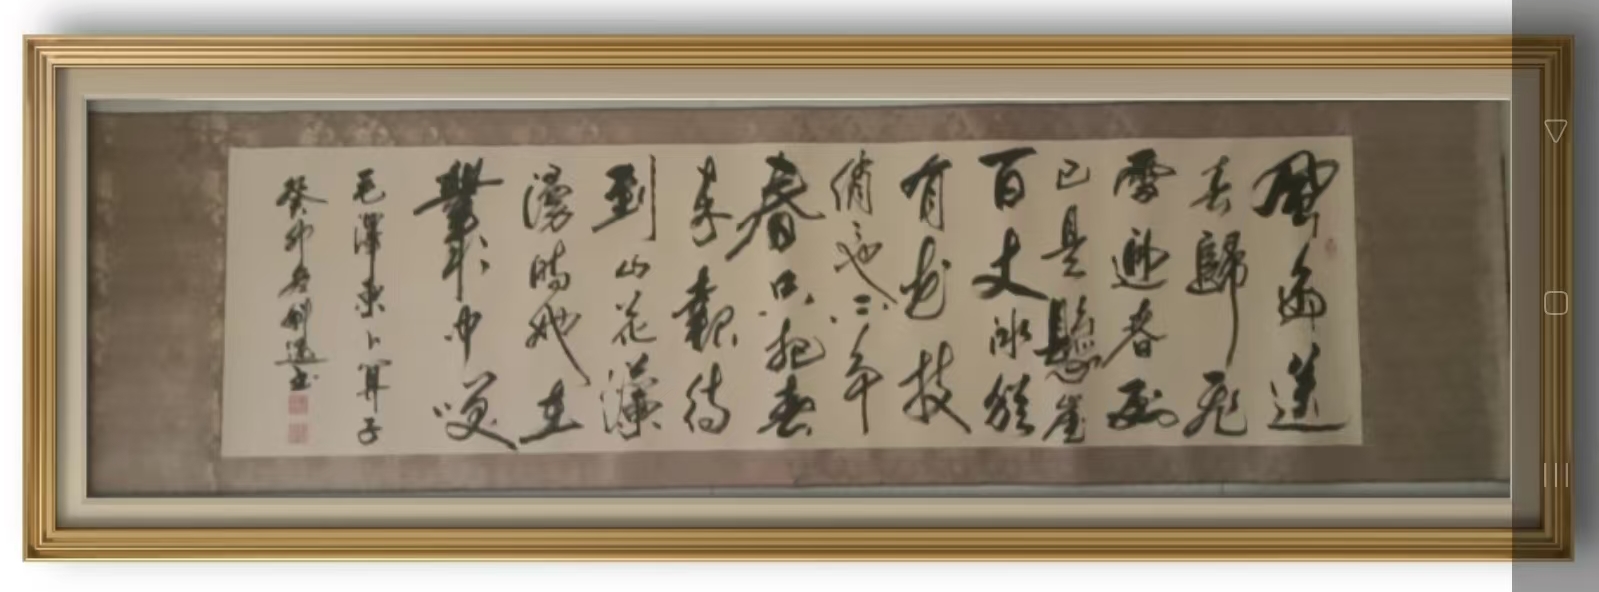 風雨送
春歸飛
雪迎春到
已是懸崖
百丈冰猶
有花枝
俏也不争
春只把春
来報待
到山花
漫時她在
叢中笑
毛澤東卜算子
癸卯